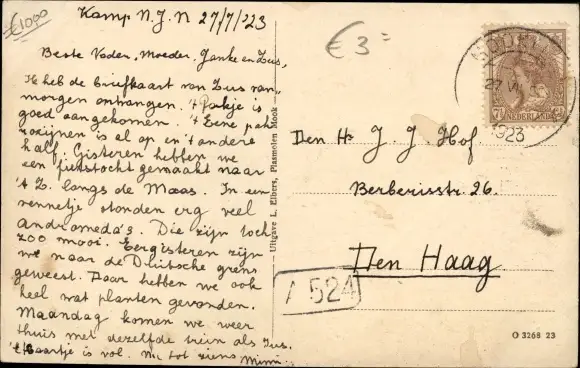 €1000
Kamp N.J.N 27/7/'23
Beste Vader, Moeder, Janke en Zus,
Ik heb de briefkaart van Zus van-
morgen ontvangen. 't Pakje is
goed aangekomen. 't Eene pak
rozijnen is al op en 't andere
half. Gisteren hebben we
een fietstocht gemaakt naar
't Z. langs de Maas. In een
vennetje stonden erg veel
Andromeda's. Die zijn toch
zoo mooi. Eergisteren zijn
we naar de Duitsche grens
geweest. Daar hebben we ook
heel wat planten gevonden.
Maandag komen we weer
thuis met dezelfde trein als Jus.
't Kaartje is vol. Nu tot ziens Mimi.
Uitgave L. Elbers, Plasmolen Mook
€ 3=
27 VII
1923
7½
NEDERLAND
Den Hr J. J. Hof.
Berberisstr. 26.
Den Haag
A 524
O 3268 23